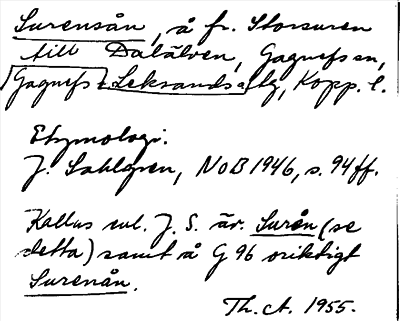 Surensån, å fr. Storsuren
till Dalälven, Gagnefs sn,
Gagnefs & Leksands tg, Kopp. l.
Etymologi.
J. Sahlgren, NoB 1946, s. 94 ff.
Kallas enl. J. S. äv. Surån (se
detta) samt å G 96 oriktigt
Surenån.
Th. A. 1955.